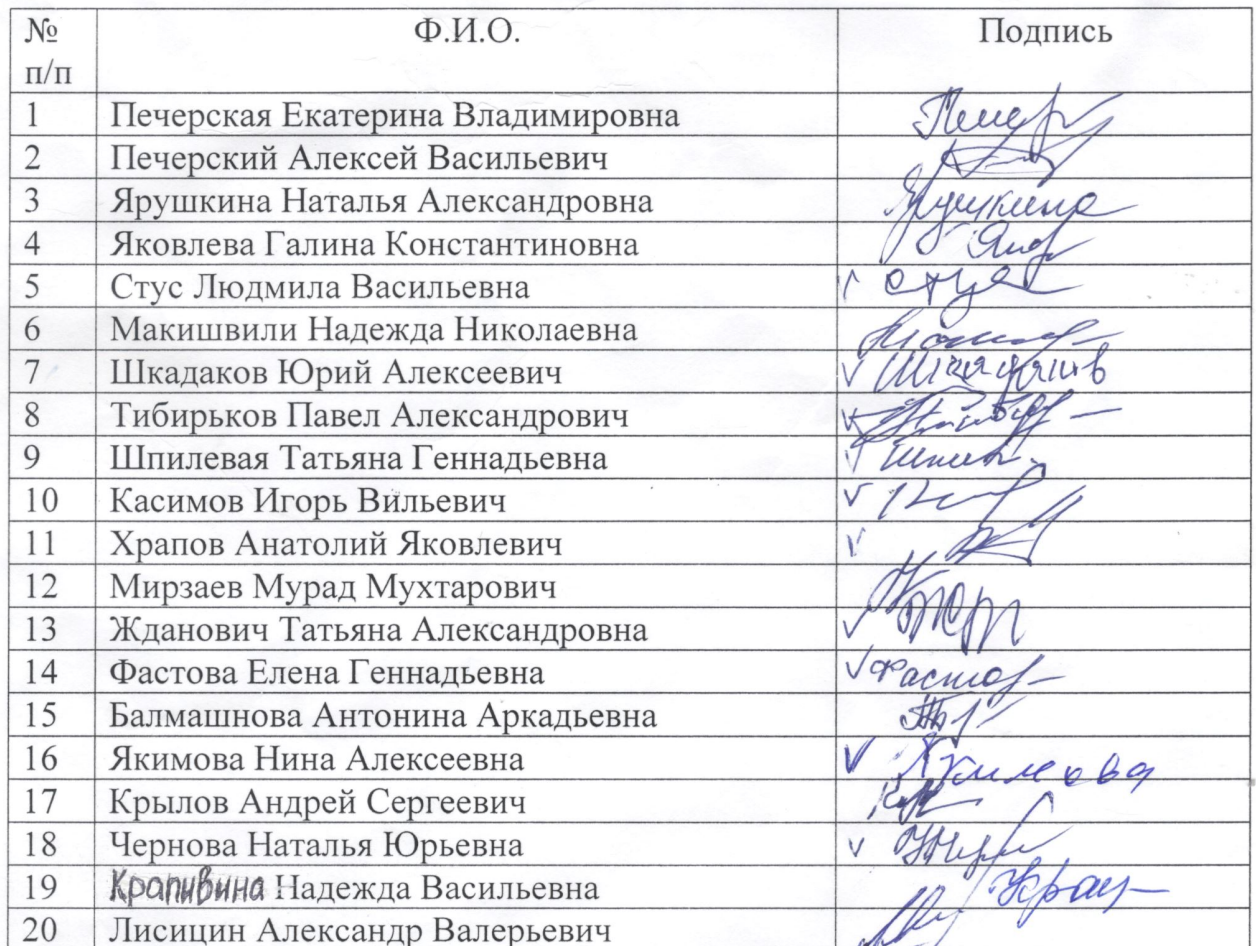 № п/п Ф.И.О. Подпись
1 Печерская Екатерина Владимировна
2 Печерский Алексей Васильевич
3 Ярушкина Наталья Александровна Ярушкина
4 Яковлева Галина Константиновна
5 Стус Людмила Васильевна
6 Макишвили Надежда Николаевна
7 Шкадаков Юрий Алексеевич
8 Тибирьков Павел Александрович
9 Шпилевая Татьяна Геннадьевна
10 Касимов Игорь Вильевич
11 Храпов Анатолий Яковлевич
12 Мирзаев Мурад Мухтарович
13 Жданович Татьяна Александровна
14 Фастова Елена Геннадьевна
15 Балмашнова Антонина Аркадьевна
16 Якимова Нина Алексеевна Якимова
17 Крылов Андрей Сергеевич
18 Чернова Наталья Юрьевна
19 Крапивина Надежда Васильевна
20 Лисицин Александр Валерьевич